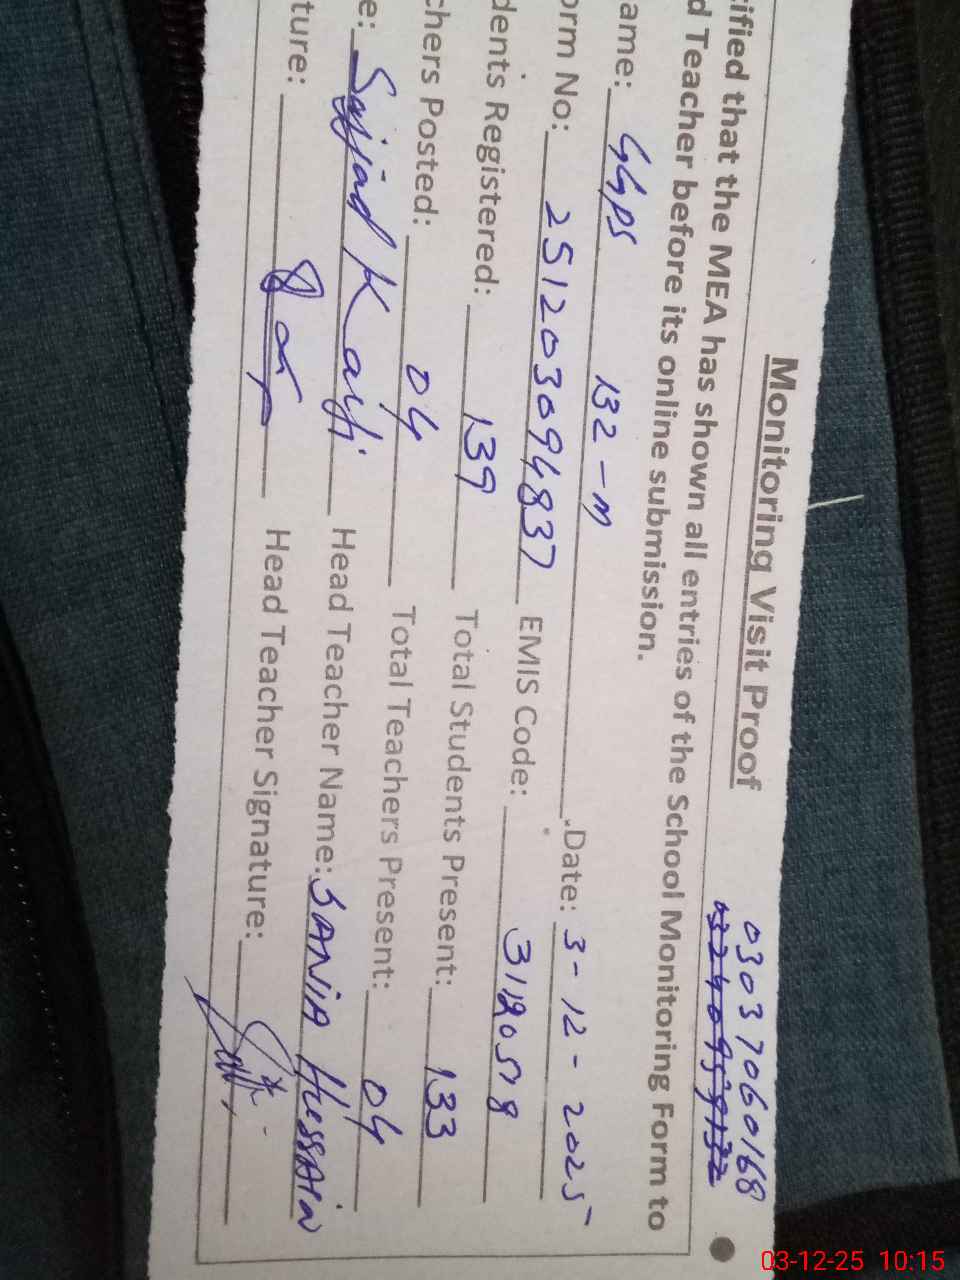 Monitoring Visit Proof
03037060168
ified that the MEA has shown all entries of the School Monitoring Form to
d Teacher before its online submission.
ame: GGPS 132-M Date: 3-12-2025
orm No: 251203094837 EMIS Code:
dents Registered: 139 Total Students Present: 133
chers Posted: 04 Total Teachers Present: 04
e: Sajjad Head Teacher Name: SANIA HUSSAIN
ture: Head Teacher Signature:
03-12-25 10:15